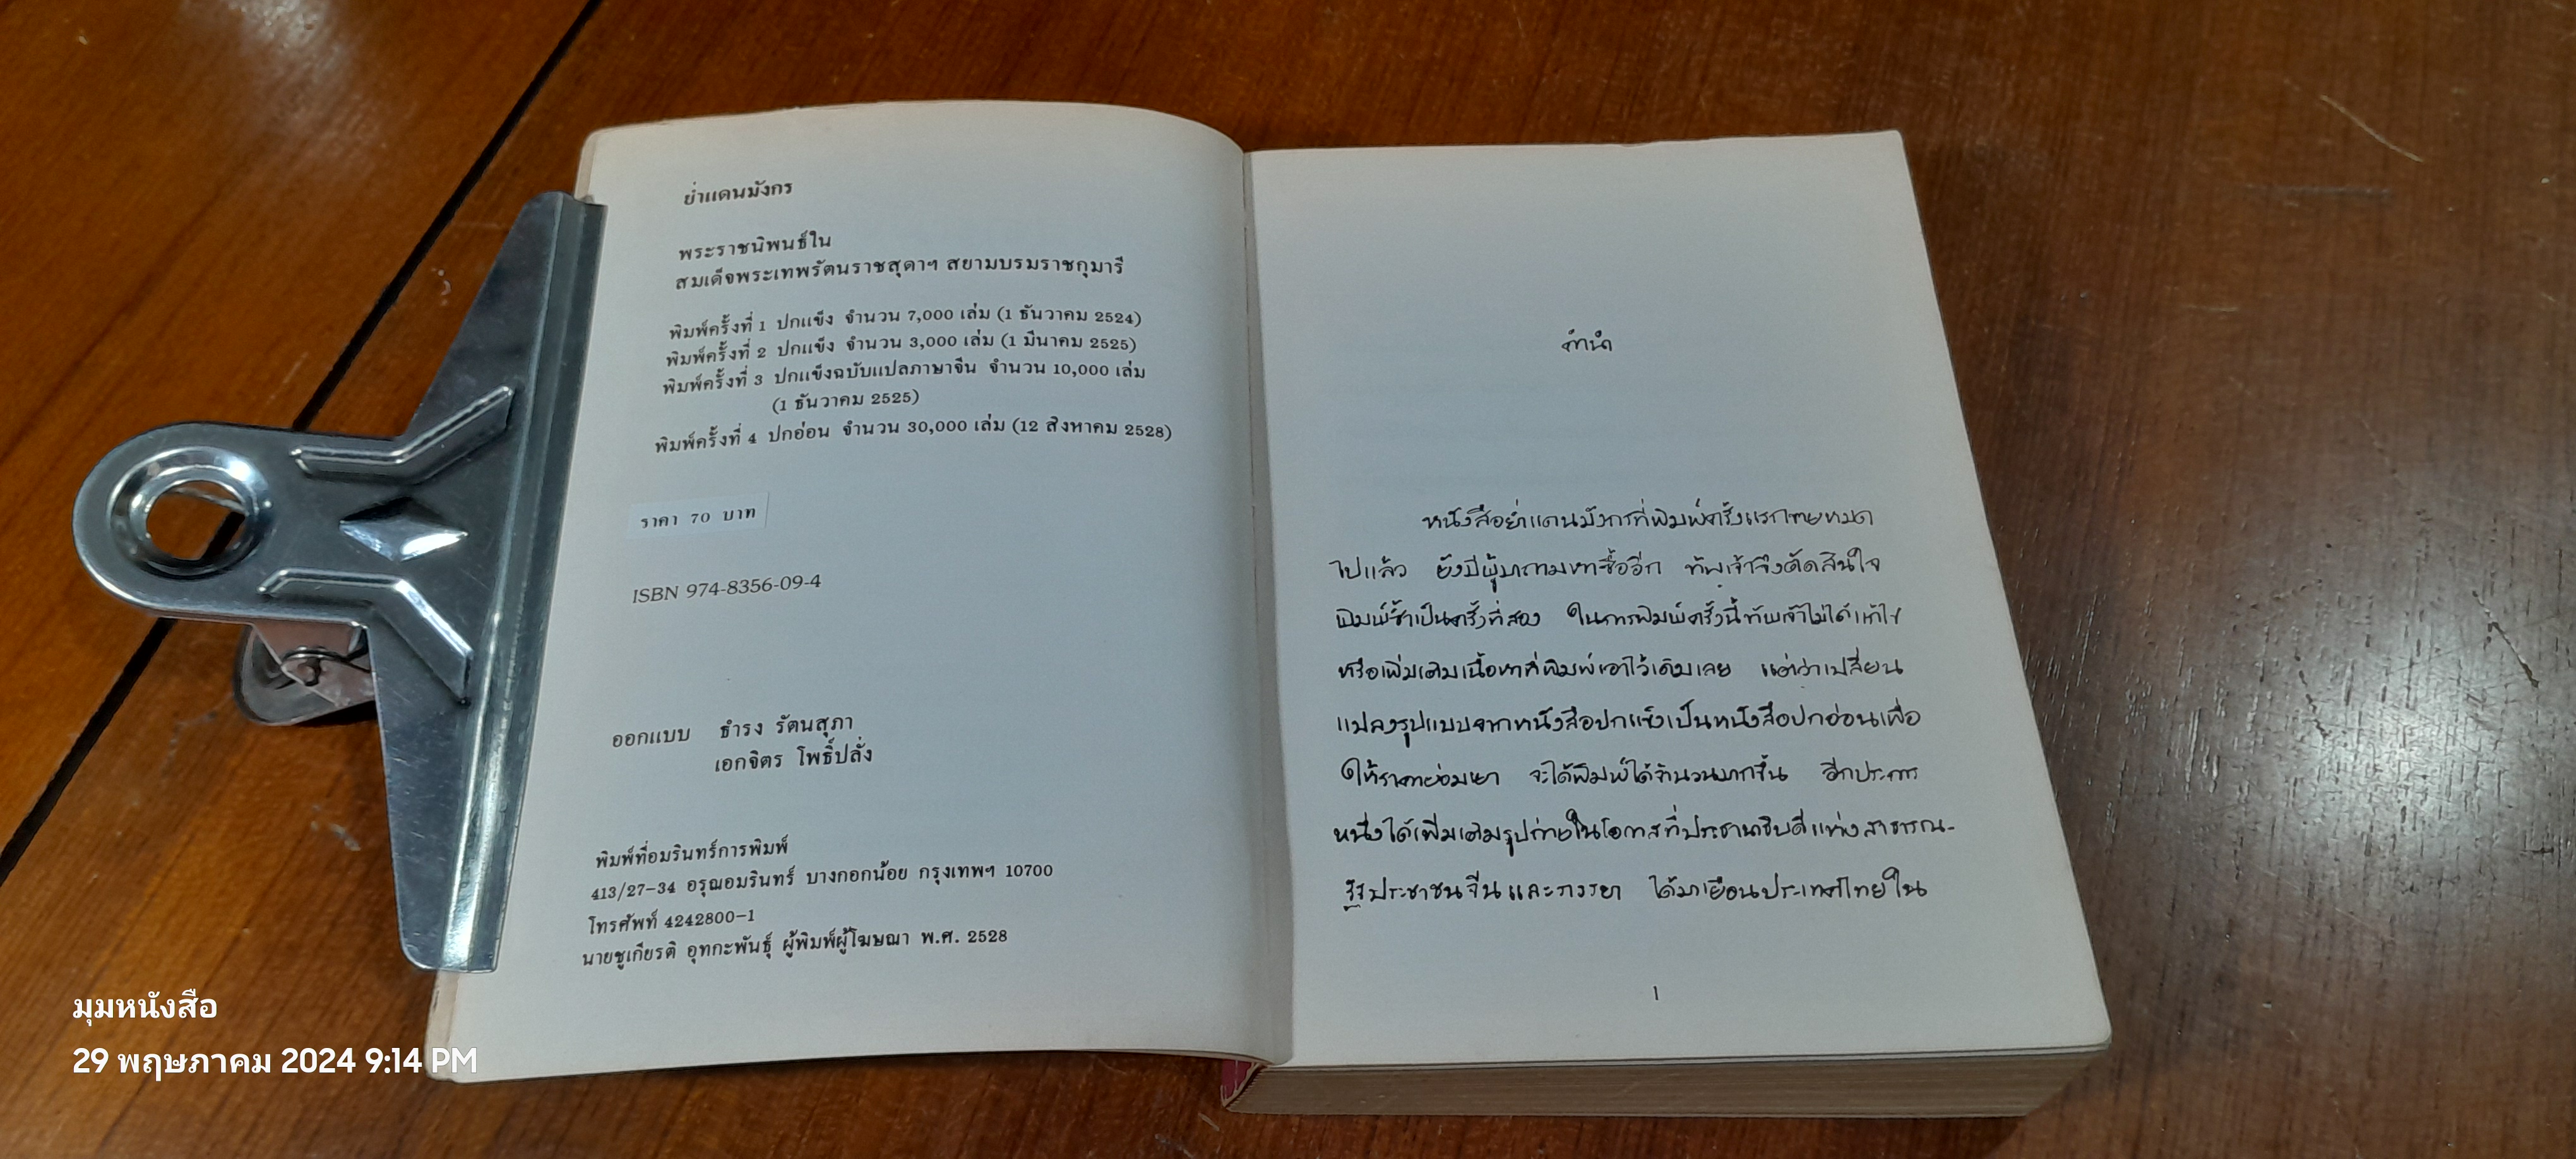 ย่ำแดนมังกร
พระราชนิพนธ์ใน
สมเด็จพระเทพรัตนราชสุดาฯ สยามบรมราชกุมารี
พิมพ์ครั้งที่ 1 ปกแข็ง จำนวน 7,000 เล่ม (1 ธันวาคม 2524)
พิมพ์ครั้งที่ 2 ปกแข็ง จำนวน 3,000 เล่ม (1 มีนาคม 2525)
พิมพ์ครั้งที่ 3 ปกแข็งฉบับแปลภาษาจีน จำนวน 10,000 เล่ม
(1 ธันวาคม 2525)
พิมพ์ครั้งที่ 4 ปกอ่อน จำนวน 30,000 เล่ม (12 สิงหาคม 2528)
ราคา 70 บาท
ISBN 974-8356-09-4
ออกแบบ ธำรง รัตนสุภา
เอกจิตร โพธิ์ปลั่ง
พิมพ์ที่อมรินทร์การพิมพ์
413/27-34 อรุณอมรินทร์ บางกอกน้อย กรุงเทพฯ 10700
โทรศัพท์ 4242800-1
นายชูเกียรติ อุทกะพันธุ์ ผู้พิมพ์ผู้โฆษณา พ.ศ. 2528
คำนำ
หนังสือย่ำแดนมังกรที่พิมพ์ครั้งแรกขายหมด
ไปแล้ว ยังมีผู้มาถามหาซื้ออีก ข้าพเจ้าจึงตัดสินใจ
พิมพ์ซ้ำเป็นครั้งที่สอง ในการพิมพ์ครั้งนี้ข้าพเจ้าไม่ได้แก้ไข
หรือเพิ่มเติมเนื้อหาที่พิมพ์เอาไว้เดิมเลย แต่ว่าเปลี่ยน
แปลงรูปแบบจากหนังสือปกแข็งเป็นหนังสือปกอ่อนเพื่อ
ให้ราคาย่อมเยา จะได้พิมพ์ได้จำนวนมากขึ้น อีกประการ
หนึ่งได้เพิ่มเติมรูปถ่ายในโอกาสที่ประธานาธิบดีแห่งสาธารณ-
รัฐประชาชนจีนและภรรยา ได้มาเยือนประเทศไทยใน
1
มุมหนังสือ
29 พฤษภาคม 2024 9:14 PM